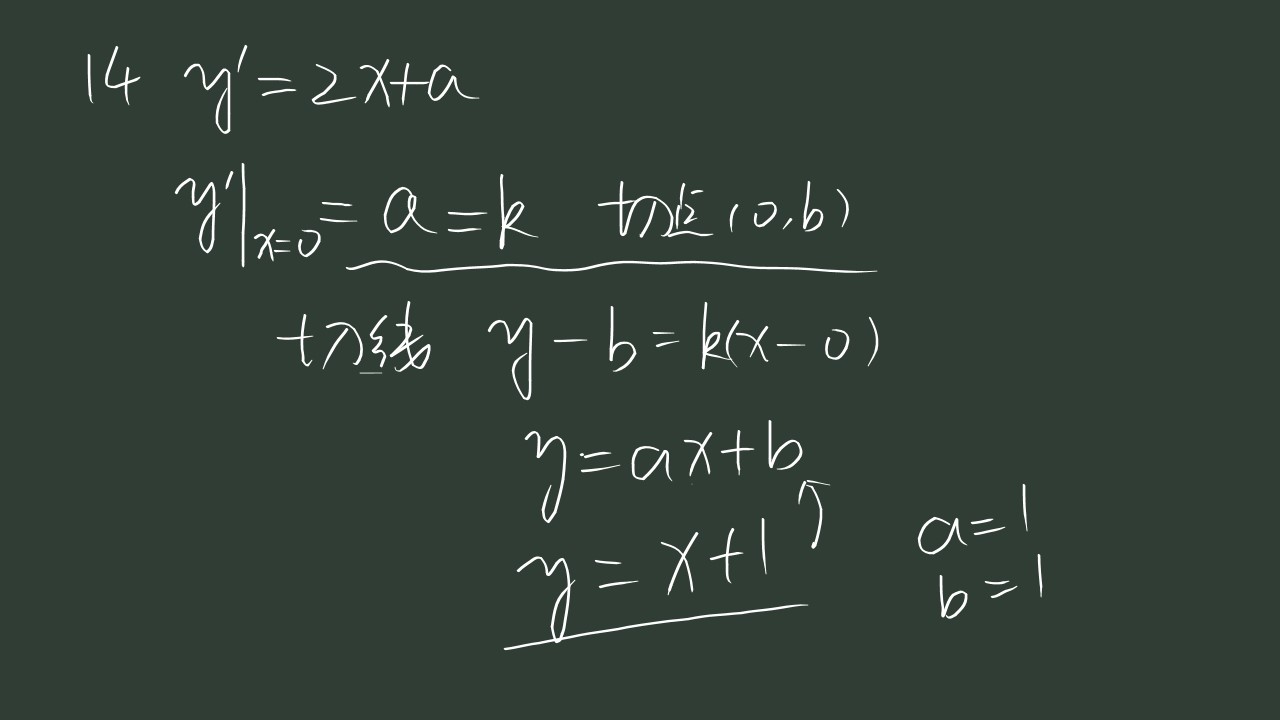 14 y′=2x+a
y′|x=0 = a=k 切点(0,b)
切线 y-b=k(x-0)
y=ax+b
y=x+1
a=1
b=1